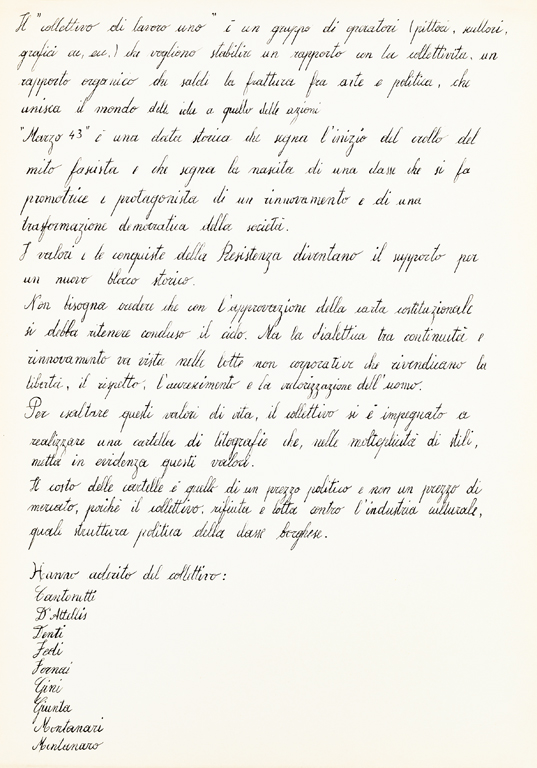 Il "collettivo di lavoro uno" è un gruppo di operatori (pittori, scultori,
grafici ecc, ecc.) che vogliono stabilire un rapporto con la collettività, un
rapporto organico che saldi la frattura fra arte e politica, che
unisca il mondo delle idee a quello delle azioni
"Marzo 43" è una data storica che segna l'inizio del crollo del
mito fascista e che segna la nascita di una classe che si fa
promotrice e protagonista di un rinnovamento e di una
trasformazione democratica della società.
I valori e le conquiste della Resistenza diventano il supporto per
un nuovo blocco storico.
Non bisogna credere che con l'approvazione della carta costituzionale
si debba ritenere concluso il ciclo. Ma la dialettica tra continuità e
rinnovamento va vista nelle lotte non corporative che rivendicano la
libertà, il rispetto, l'accrescimento e la valorizzazione dell'uomo.
Per esaltare questi valori di vita, il collettivo si è impegnato a
realizzare una cartella di litografie che, nelle molteplicità di stili,
metta in evidenza questi valori.
Il costo delle cartelle è quello di un prezzo politico e non un prezzo di
mercato, poiché il collettivo, rifiuta e lotta contro l'industria culturale,
quali struttura politica della classe borghese.
Hanno aderito del collettivo:
Cantonetti
D'Attellis
Denti
Fedi
Fornai
Gini
Giunta
Montanari
Montanaro